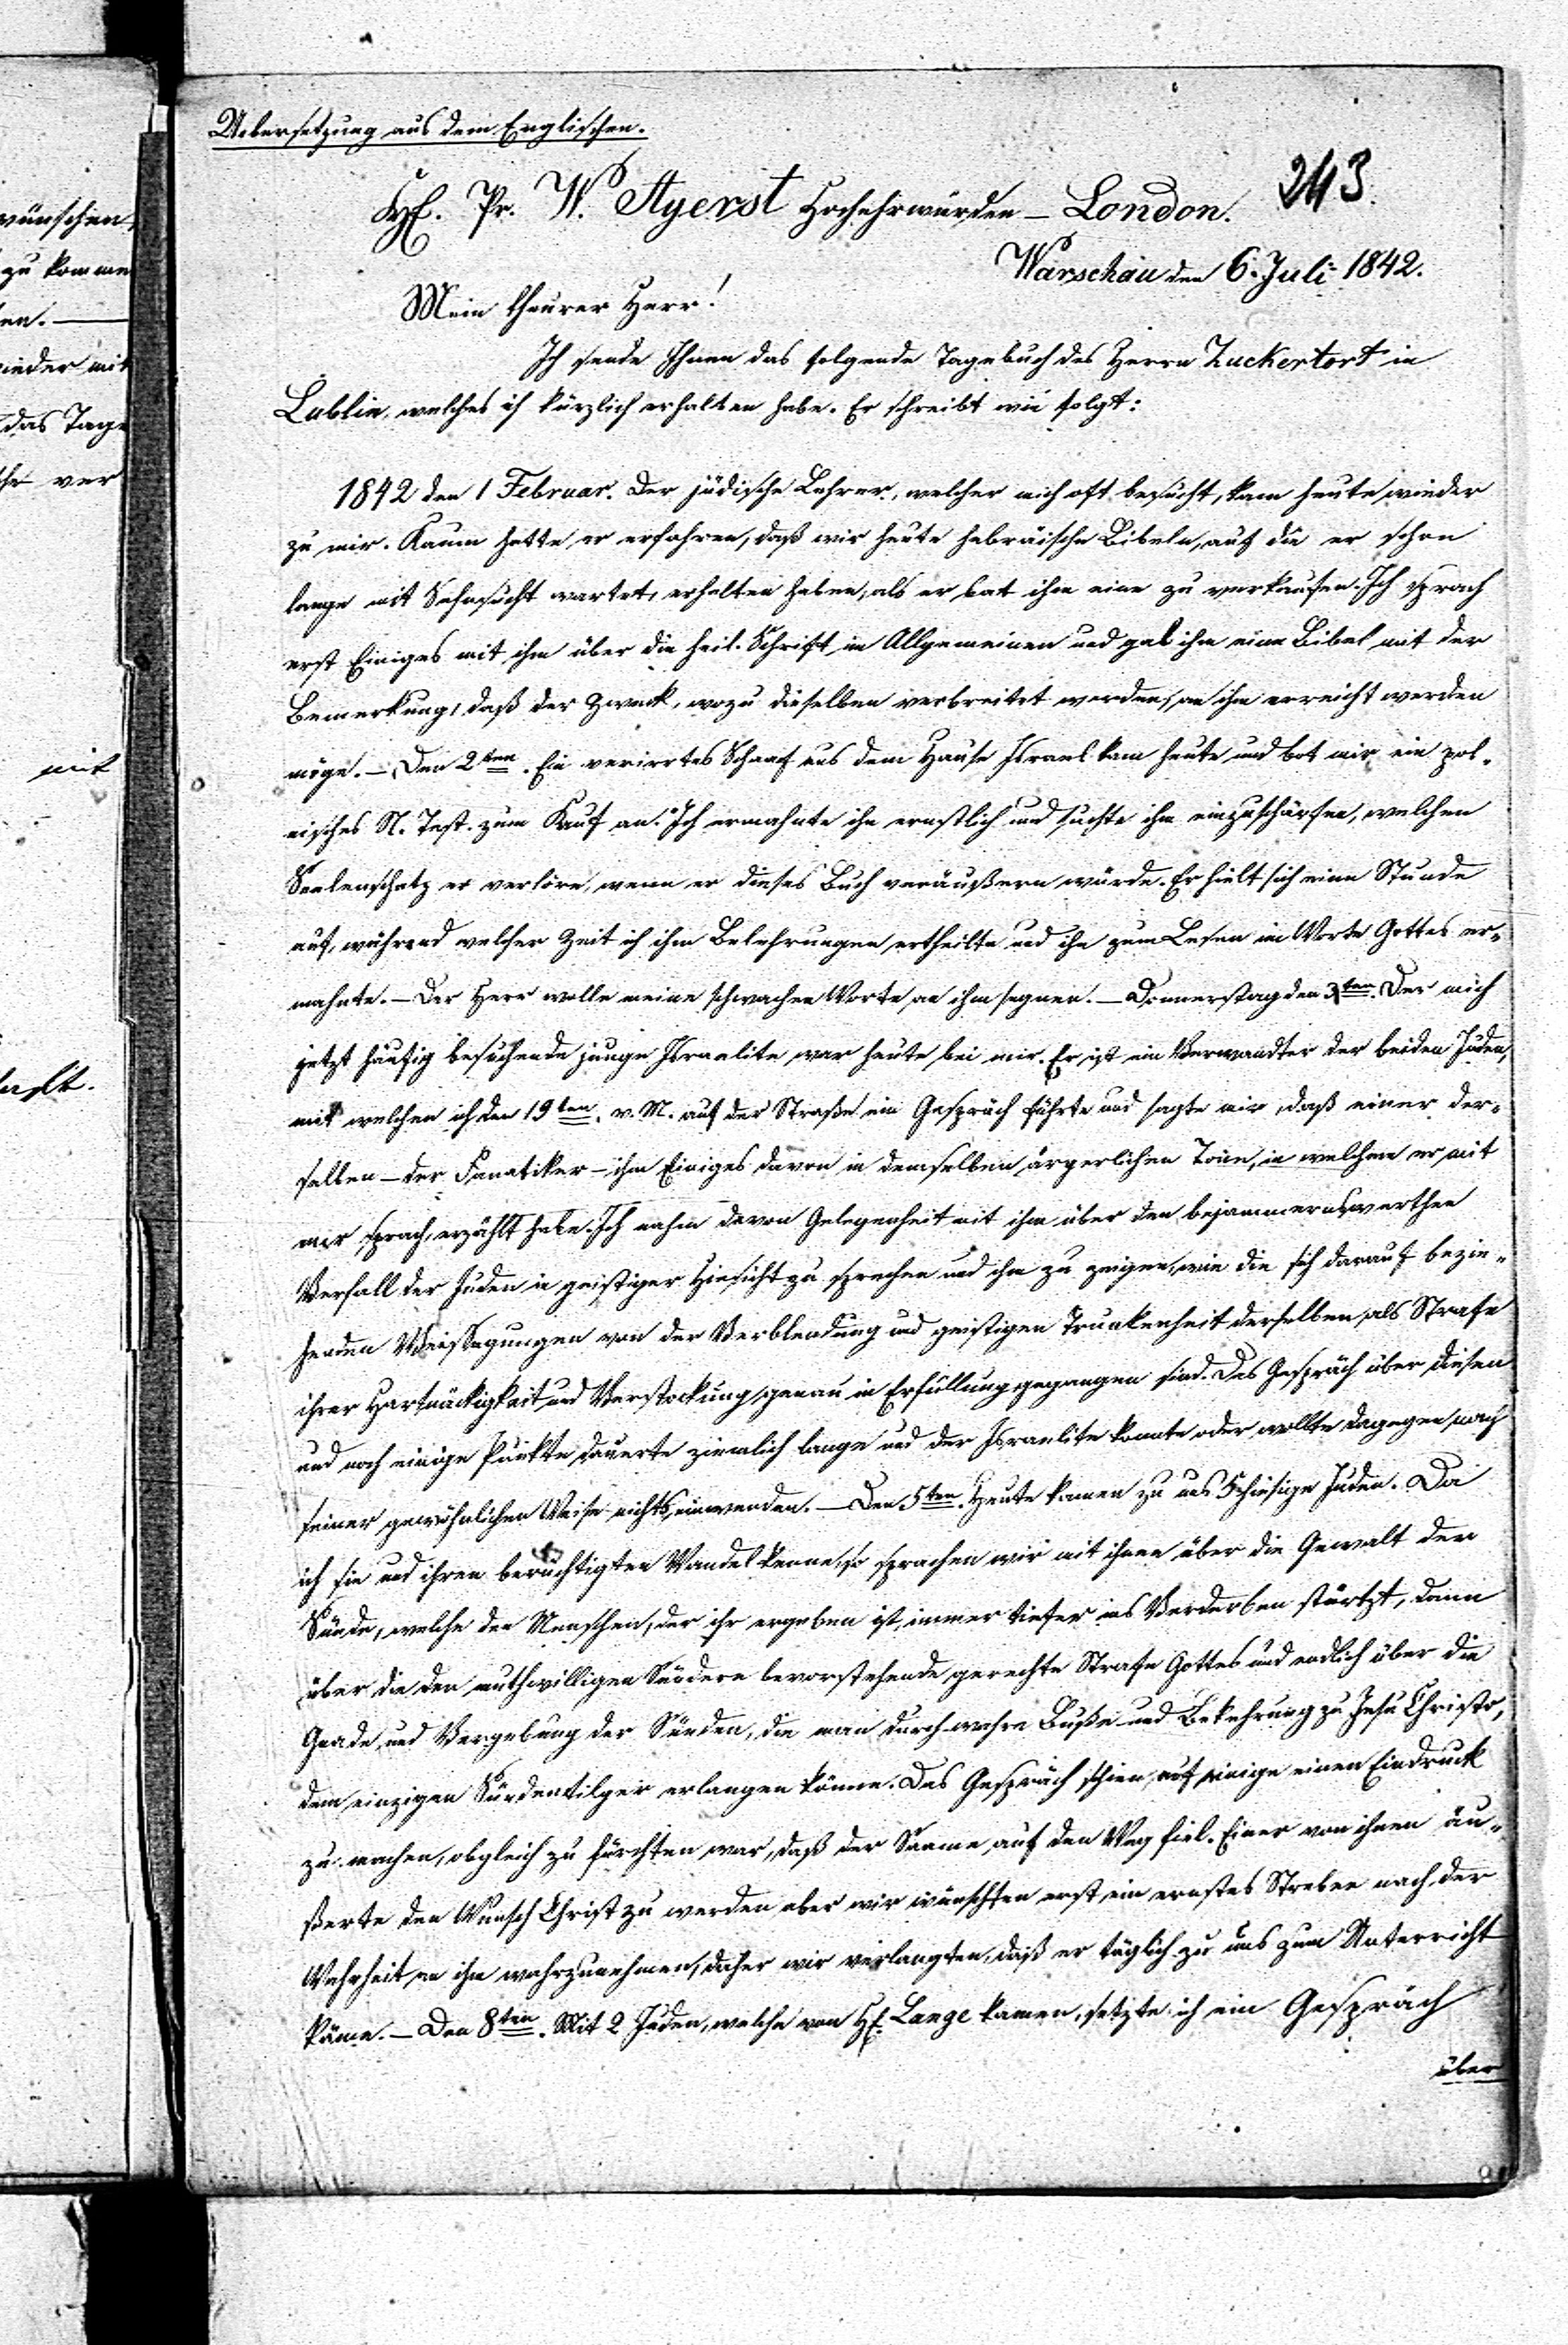 Uebersetzung aus dem Englischen.
243.
Pr. W. Ayerst Hochehrwürden – London.
Warschau den 6. Juli 1842.
Mein theurer Herr!
Ich sende Ihnen das folgende Tagebuch des Herrn Zuckertort in
Lublin, welches ich kürzlich erhalten habe. Er schreibt wie folgt:
1842 den 1 Februar. Der jüdische Lehrer, welcher mich oft besucht, kam heute wieder
zu mir. Kaum hatte er erfahren, daß wir heute hebräische Bibeln, auf die er schon
lange mit Sehnsucht wartet, erhalten haben, als er bat ihm eine zu verkaufen. Ich sprach
erst Einiges mit ihm über die heil. Schrift im Allgemeinen und gab ihm eine Bibel mit der
Bemerkung, daß der Zweck, wozu dieselben verbreitet werden, an ihm erreicht werden
möge. – Den 2ten. Ein verirrtes Schaaf aus dem Hause Israel kam heute und bot mir ein pol-
nisches N. Test. zum Kauf an. Ich ermahnte ihn ernstlich und suchte ihm einzuschärfen, welchen
Seelenschatz er verlöre, wenn er dieses Buch veräußern würde. Er hielt sich eine Stunde
auf, während welcher Zeit ich ihm Belehrungen ertheilte und ihn zum Lesen im Worte Gottes er-
mahnte. – Der Herr wolle meine schwachen Worte an ihm segnen. – Donnerstag den 3ten. Der mich
jetzt häufig besuchende junge Israelite war heute bei mir. Er ist ein Verwandter der beiden Juden,
mit welchen ich den 19ten. v. M. auf der Straße ein Gespräch führte und sagte mir, daß einer der-
selben – der Fanatiker – ihm Einiges davon in demselben ärgerlichen Tone, in welchem er mit
mir sprach, erzählt habe. Ich nahm davon Gelegenheit mit ihm über den bejammernswerthen
Verfall der Juden in geistiger Hinsicht zu sprechen und ihm zu zeigen, wie die sich darauf bezie-
henden Weissagungen von der Verblendung und geistigen Trunkenheit derselben als Strafe
ihrer Hartnäckigkeit und Verstockung genau in Erfüllung gegangen sind. Das Gespräch über diesen
und noch einige Punkte dauerte ziemlich lange und der Israelite konnte oder wollte dagegen nach
seiner gewöhnlichen Weise nichts einwenden. – Den 5ten. Heute kamen zu uns 5 hiesige Juden. Da
ich sie und ihren berüchtigten Wandel kenne, so sprachen wir mit ihnen über die Gewalt der
Sünde, welche den Menschen, der ihr ergeben ist, immer tiefer ins Verderben stürtzt, dann
über die den muthwilligen Sündern bevorstehende gerechte Strafe Gottes und endlich über die
Gnade und Vergebung der Sünden, die man durch wahre Buße und Bekehrung zu Jesu Christo,
dem einzigen Sündentilger erlangen könne. Das Gespräch schien auf einige einen Eindruck
zu machen, obgleich zu fürchten war, daß der Saame auf den Weg fiel. Einer von ihnen äu-
ßerte den Wunsch Christ zu werden aber wir wünschten erst ein ernstes Streben nach der
Wahrheit an ihm wahrzunehmen, daher wir verlangten, daß er täglich zu uns zum Unterricht
käme. – Den 8ten. Mit 2 Juden, welche von H. Lange kamen, setzte ich ein Gespräch
über
wünschen,
zu komme
en.
wieder mit
das Tage
ver
mit